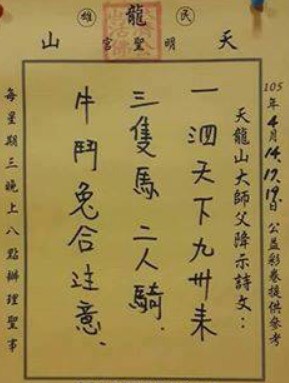 民 龍 雄
天 明聖宮 山
105年4月14.17.19日 公益彩卷提供參考
天龍山大師父降示詩文：
一泗天下九卅來
三隻馬 二人騎.
牛鬥兔合注意.
每星期三晚上八點辦理聖事